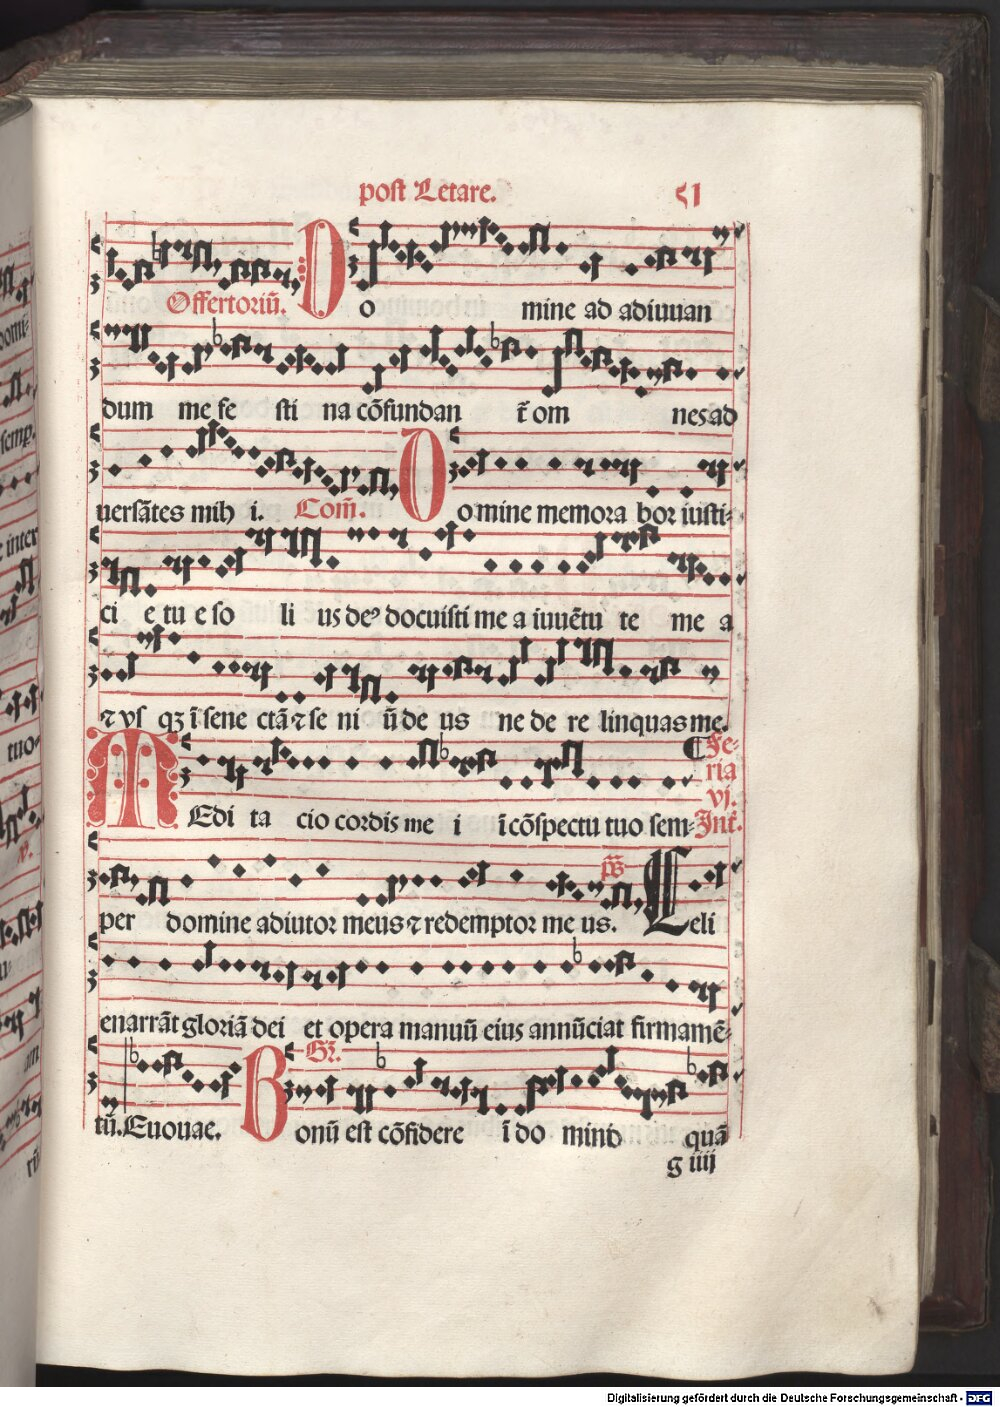 post Letare. 51
Offertoriū. Do mine ad adiuuan
dum me fe sti na cōfundan t̄ om nes ad
uersātes mih i. Com̄. Do mine memora bor iusti-
ci e tu e so li us deꝰ docuisti me a iuuētu te me a
⁊ vsqꝫ ī sene ctā ⁊ se ni ū de us ne de re linquas me.
¶ Fe-
ria
vj.
MEdi ta cio cordis me i ī cōspectu tuo sem- Int̄.
per domine adiutor meus ⁊ redemptor me us. p̄s Celi
enarrāt gloriā dei et opera manuū eius annūciat firmamē-
tū. Euouae. Gr̄. Bonū est cōfidere ī do mino quā
g iiij
Digitalisierung gefördert durch die Deutsche Forschungsgemeinschaft - DFG